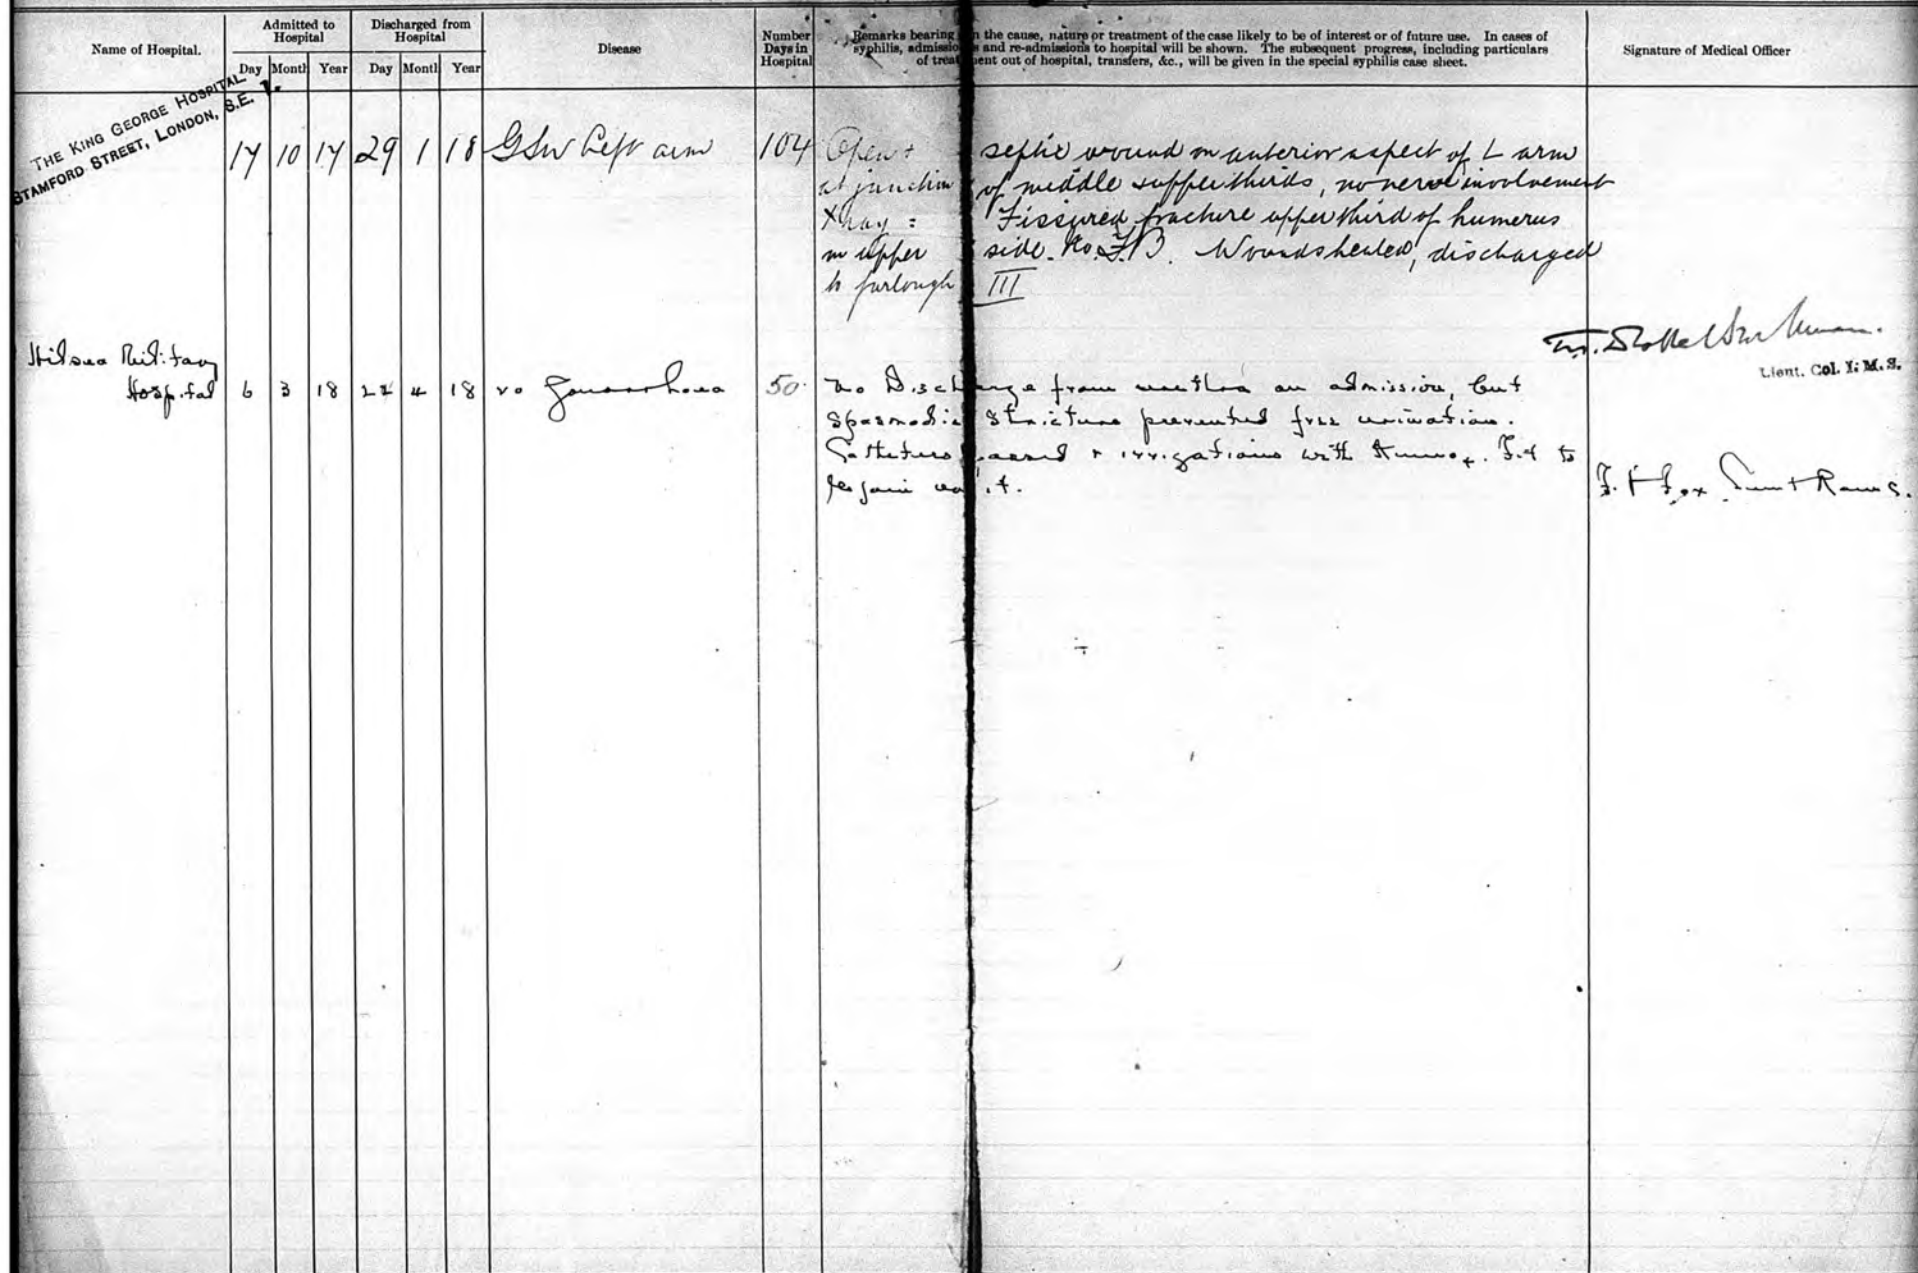 Name of Hospital.
Admitted to Hospital
Discharged from Hospital
Day Month Year Day Month Year
Disease
Number Days in Hospital
Remarks bearing on the cause, nature or treatment of the case likely to be of interest or of future use. In cases of
syphilis, admissions and re-admissions to hospital will be shown. The subsequent progress, including particulars
of treatment out of hospital, transfers, &c., will be given in the special syphilis case sheet.
Signature of Medical Officer
THE KING GEORGE HOSPITAL
STAMFORD STREET, LONDON, S.E. 1.
17 10 17 29 1 18 GSW Left arm 104 Open + septic wound on anterior aspect of L arm
at junction of middle & upper thirds, no nerve involvement
Xray = Fissured fracture upper third of humerus
on upper side. No. F.B. Wounds healed, discharged
to furlough III
Lieut. Col. I. M. S.
Hilsea Military
Hospital 6 3 18 24 4 18 Gonorrhoea 50 No Discharge from urethra on admission, but
spasmodic stricture prevented free urination.
Catheters passed & irrigations with Fit to
rejoin unit.
F. Fox